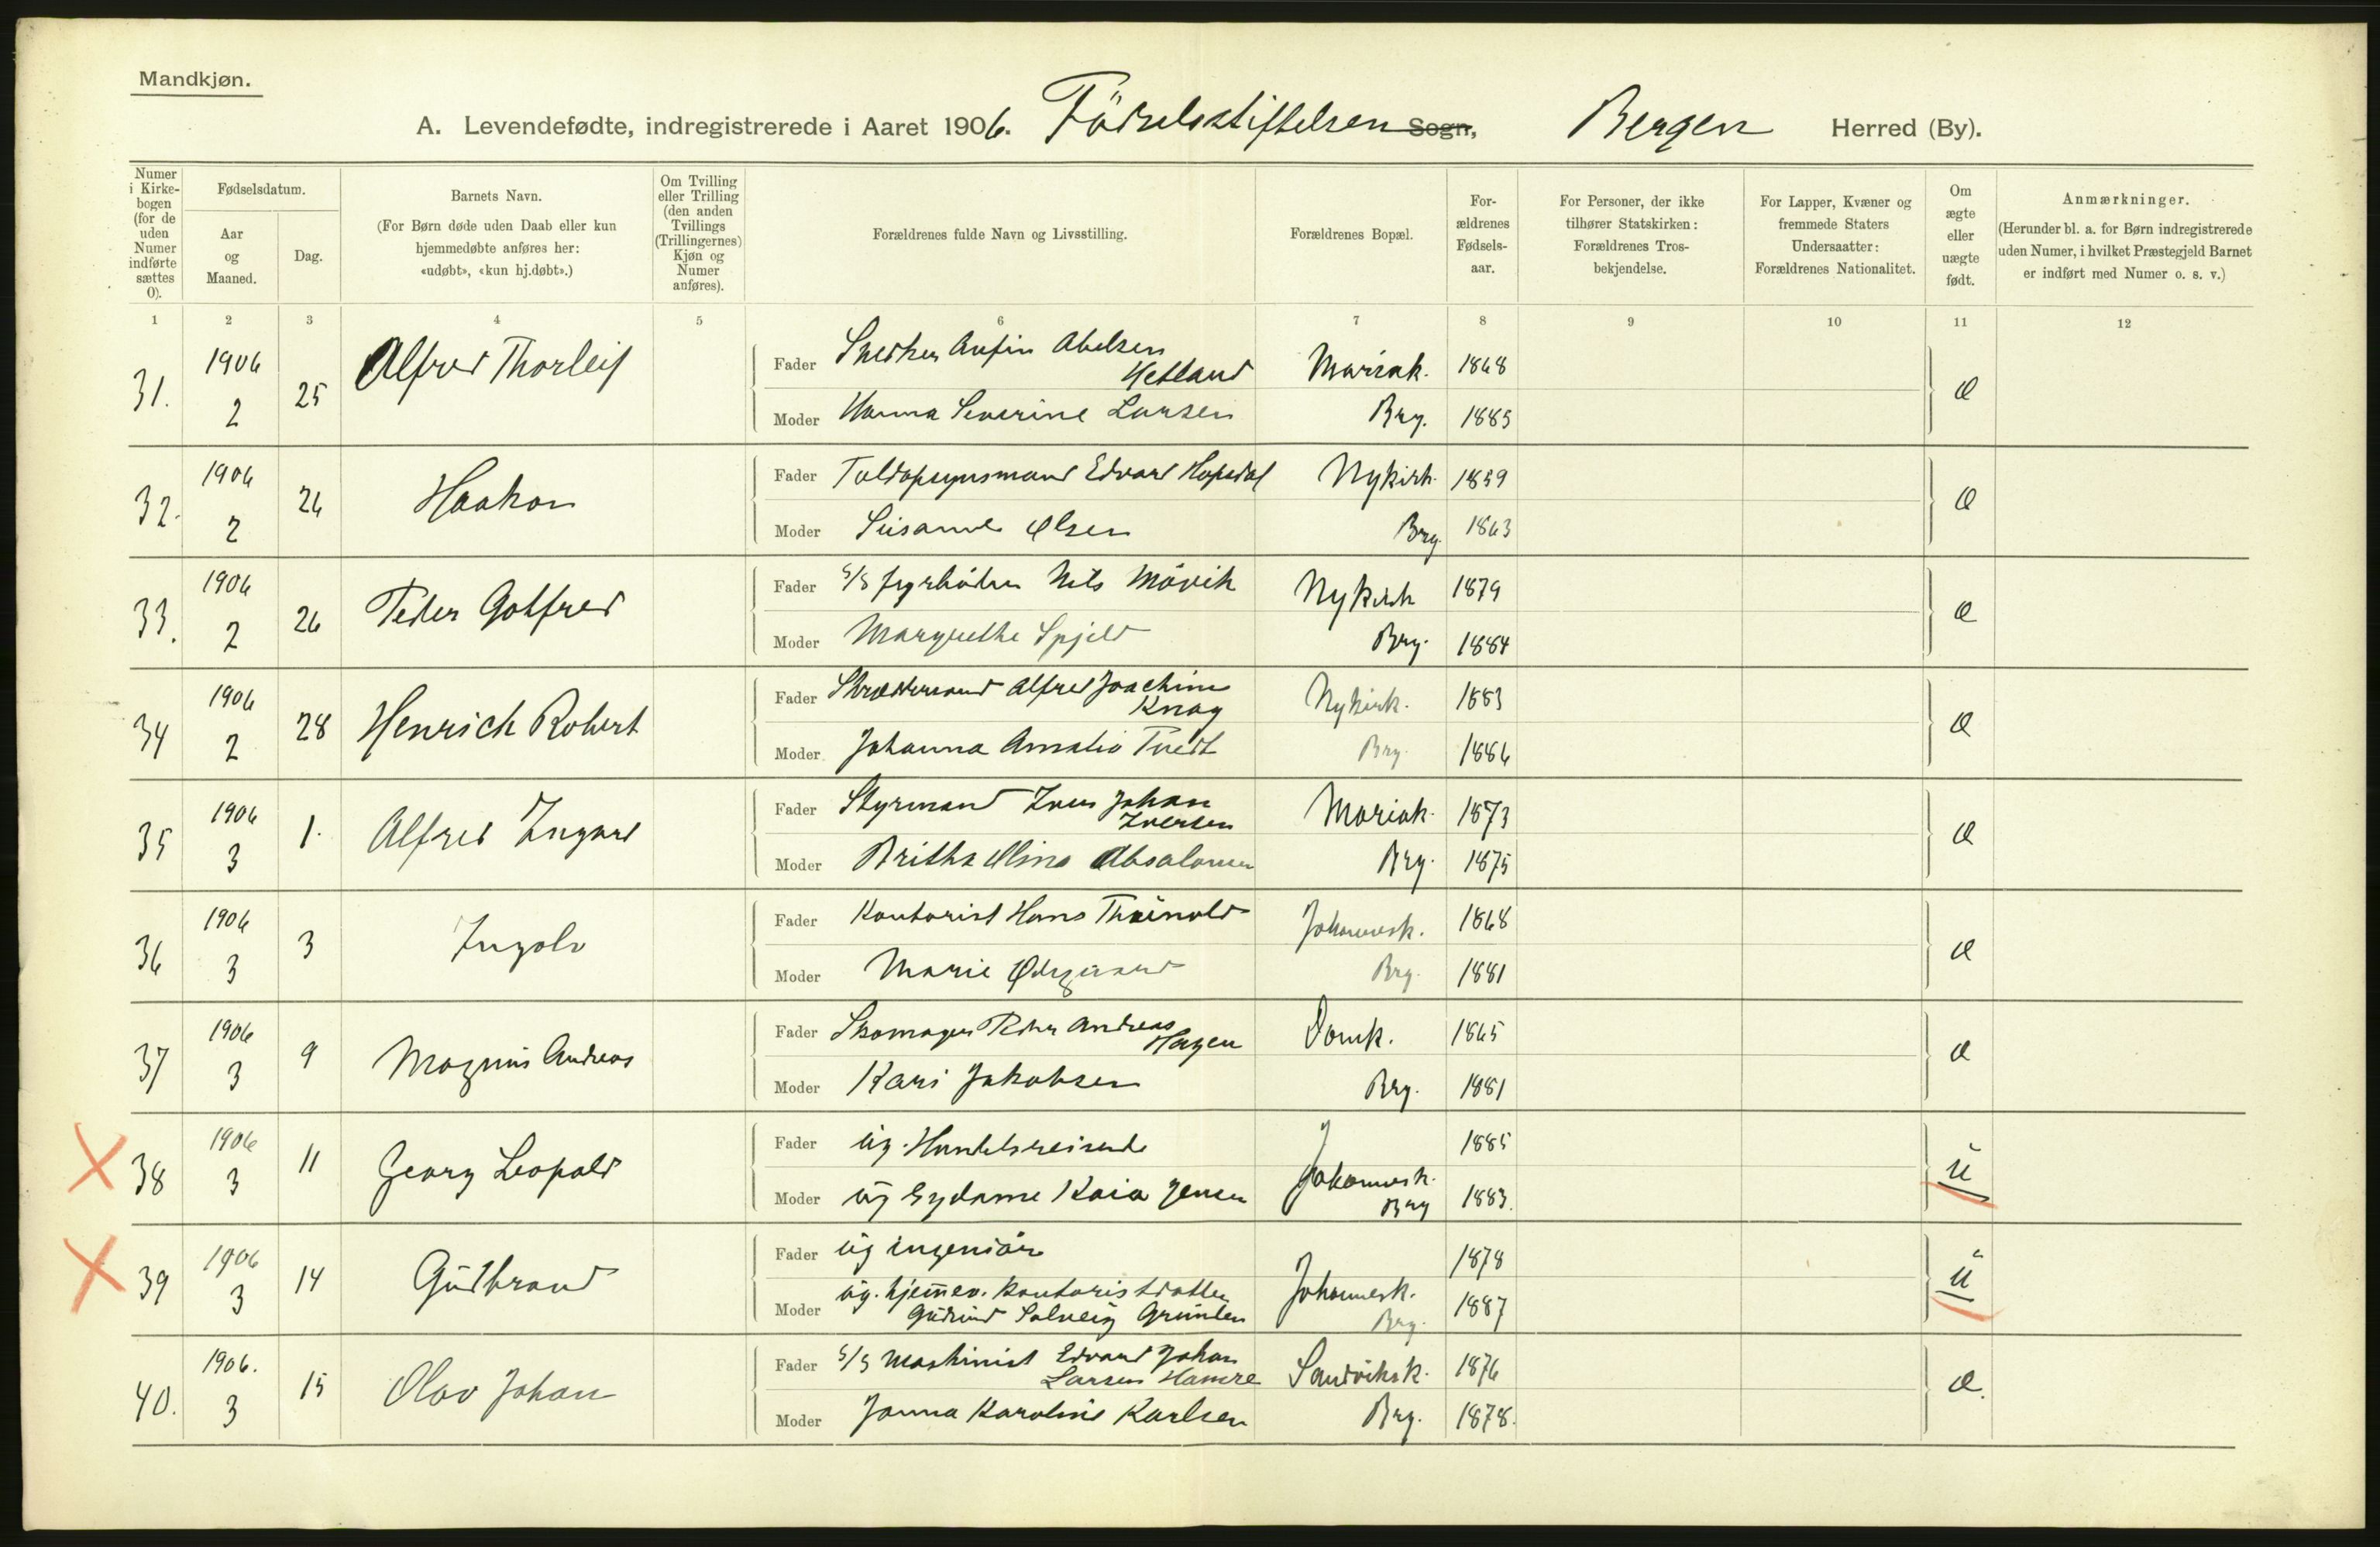 Mandkjøn.
A. Levendefødte, indregistrerede i Aaret 1906. Födselsstiftelsen Sogn, Bergen Herred (By).
Numer i Kirkebogen (for de uden Numer indførte sættes 0).
Fødselsdatum.
Aar og Maaned.
Dag.
Barnets Navn.
(For Børn døde uden Daab eller kun hjemmedøbte anføres her: «udøbt», «kun hj.døbt».)
Om Tvilling eller Trilling (den anden Tvillings (Trillingernes) Kjøn og Numer anføres).
Forældrenes fulde Navn og Livsstilling.
Forældrenes Bopæl.
Forældrenes Fødselsaar.
For Personer, der ikke tilhører Statskirken: Forældrenes Trosbekjendelse.
For Lapper, Kvæner og fremmede Staters Undersaatter: Forældrenes Nationalitet.
Om ægte eller uægte født.
Anmærkninger.
(Herunder bl. a. for Børn indregistrerede uden Numer, i hvilket Præstegjeld Barnet er indført med Numer o. s. v.)
1 2 3 4 5 6 7 8 9 10 11 12
31. 1906 2 25 Alfred Thorleif
Fader Snedker Anfin Abelsen Hetland Mariak. 1868 æ
Moder Hanna Severine Larsen Brg. 1885
32. 1906 2 26 Haakon
Fader Toldopsynsmand Edvard Hopsdal Nykirk. 1859 æ
Moder Susanne Olsen Brg. 1863
33. 1906 2 26 Peder Gotfred
Fader S/S fyrböder Nils Mövik Nykirk 1879 æ
Moder Margrethe Spjeld Brg. 1884
34 1906 2 28 Henrich Robert
Fader Alfred Joachim Knag Nykirk. 1883 æ
Moder Johanna Amalia Tvedt Brg. 1886
35 1906 3 1. Alfred Ingvard
Fader Styrmand Iver Johan Iversen Mariak. 1873 æ
Moder Britha Olina Absalonsen Brg. 1875
36 1906 3 3 Ingolv
Fader Kontorist Hans Johannesk. 1868 æ
Moder Marie Ødegaard Brg. 1881
37 1906 3 9 Magnus Andreas
Fader Skomager Peder Andreas Hagen Domk. 1865 æ
Moder Kari Jakobsen Brg. 1881
38 1906 3 11 Georg Leopold
Fader ug. Handelsreisende 1885 u
Moder ug Sydame Kaia Jensen Johannesk. Brg 1883.
39 1906 3 14 Gudbrand
Fader ug ingeniör 1878 u
Moder ug. hjemmev. Kontorist datter Gudrund Solveig Johannesk. Brg. 1887
40. 1906. 3 15 Olav Johan
Fader S/S Maskinist Edvard Johan Larsen Hamre Sandviksk. 1876 æ.
Moder Janna Karoline Karlsen Brg. 1878.